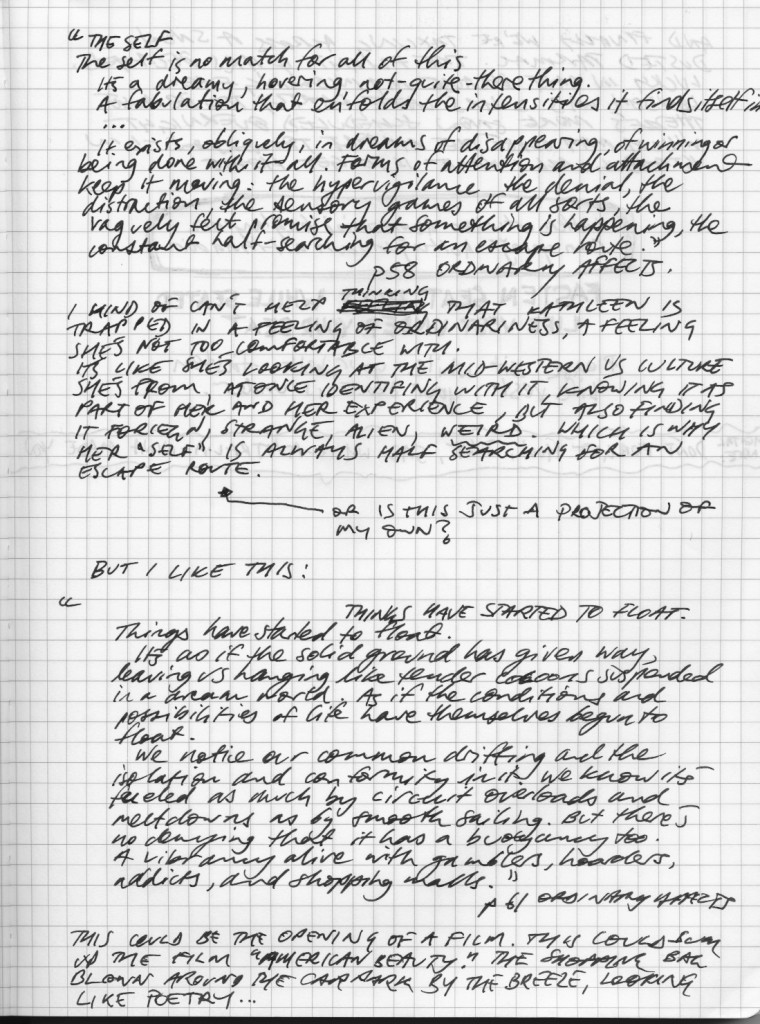 " THE SELF
The self is no match for all of this
Its a dreamy, hovering, not-quite-there thing.
A fabulation that enfolds the intensities it finds itself in
...
It exists, obliquely, in dreams of disappearing, of winning or
being done with it all. Forms of attention and attachment
keep it moving: the hypervigilance, the denial, the
distraction, the sensory games of all sorts, the
vaguely felt promise that something is happening, the
constant half-searching for an escape route."
p58 ORDINARY AFFECTS.
THINKING
I KIND OF CAN'T HELP THAT KATHLEEN IS
TRAPPED IN A FEELING OF ORDINARINESS, A FEELING
SHE'S NOT TOO COMFORTABLE WITH.
ITS LIKE SHE'S LOOKING AT THE MID-WESTERN US CULTURE
SHE'S FROM, AT ONCE IDENTIFING WITH IT, KNOWING IT AS
PART OF HER AND HER EXPERIENCE, BUT ALSO FINDING
IT FORIEGN, STRANGE, ALIEN, WEIRD. WHICH IS WHY
HER "SELF" IS ALWAYS HALF SEARCHING FOR AN
ESCAPE ROUTE.
OR IS THIS JUST A PROJECTION OF
MY OWN?
BUT I LIKE THIS:
" THINGS HAVE STARTED TO FLOAT.
Things have started to float.
Its as if the solid ground has given way,
leaving us hanging like tender cocoons suspended
in a dream world. As if the conditions and
possibilities of life have themselves begun to
float.
We notice our common drifting and the
isolation and conformity in it. We know it's
fueled as much by circuit overloads and
meltdowns as by smooth sailing. But there's
no denying that it has a buoyancy too.
A vibrancy alive with gamblers, hoarders,
addicts, and shopping malls."
p 61 ORDINARY AFFECTS
THIS COULD BE THE OPENING OF A FILM. THIS COULD SUM
UP THE FILM "AMERICAN BEAUTY." THE SHOPPING BAG
BLOWN AROUND THE CAR PARK BY THE BREEZE, LOOKING
LIKE POETRY...